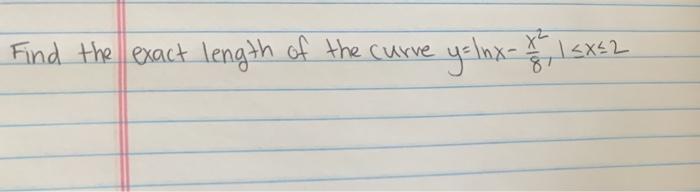 Find the exact length of the curve y=lnx-x²/8, 1≤x≤2